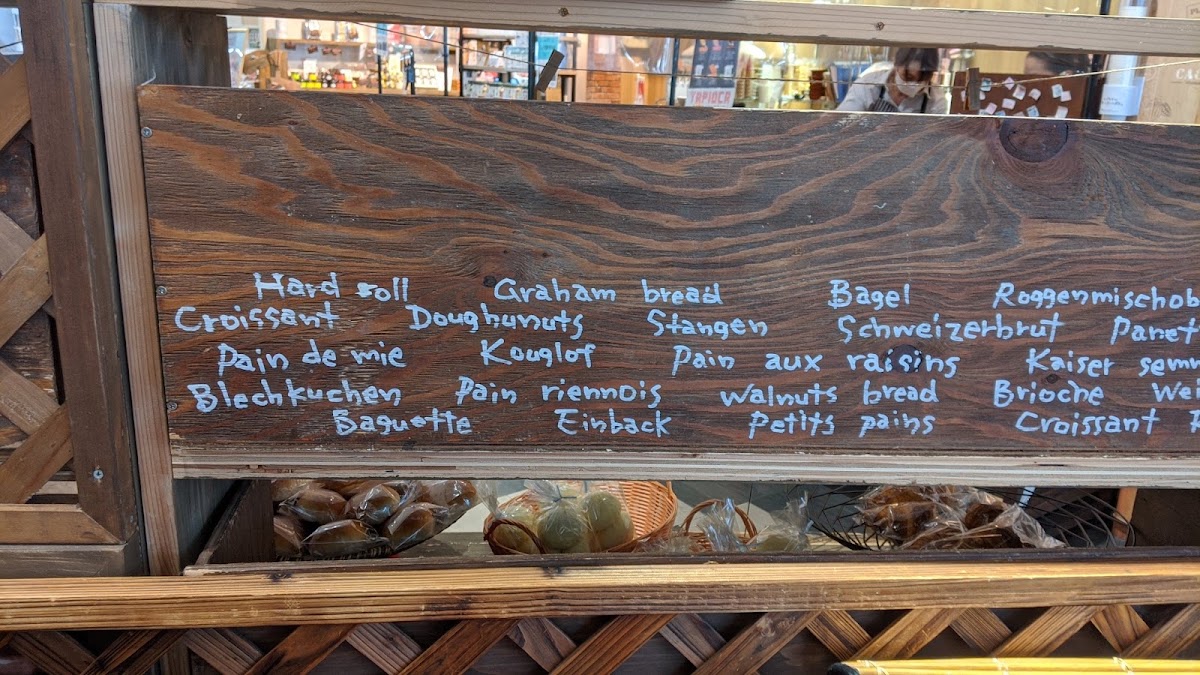 TAPIOCA
Hard roll Graham bread Bagel Roggenmischob
Croissant Doughunuts Stangen Schweizerbrut Panet
Pain de mie Kouglof Pain aux raisins Kaiser semm
Blechkuchen Pain riennois Walnuts bread Brioche We
Baguette Einback Petits pains Croissant